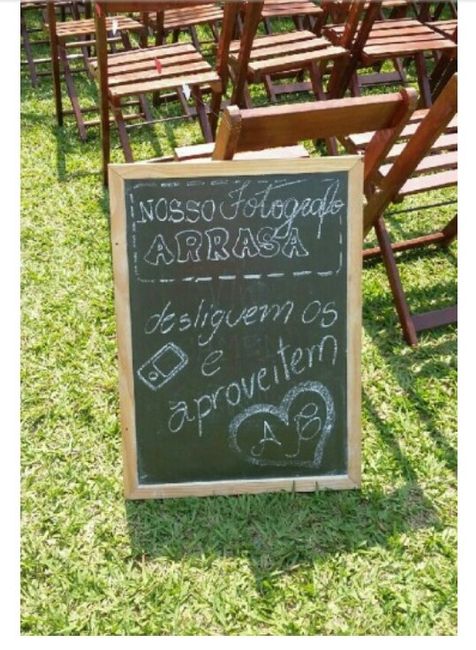 NOSSO Fotografo
ARRASA
desliguem os
e
aproveitem
A